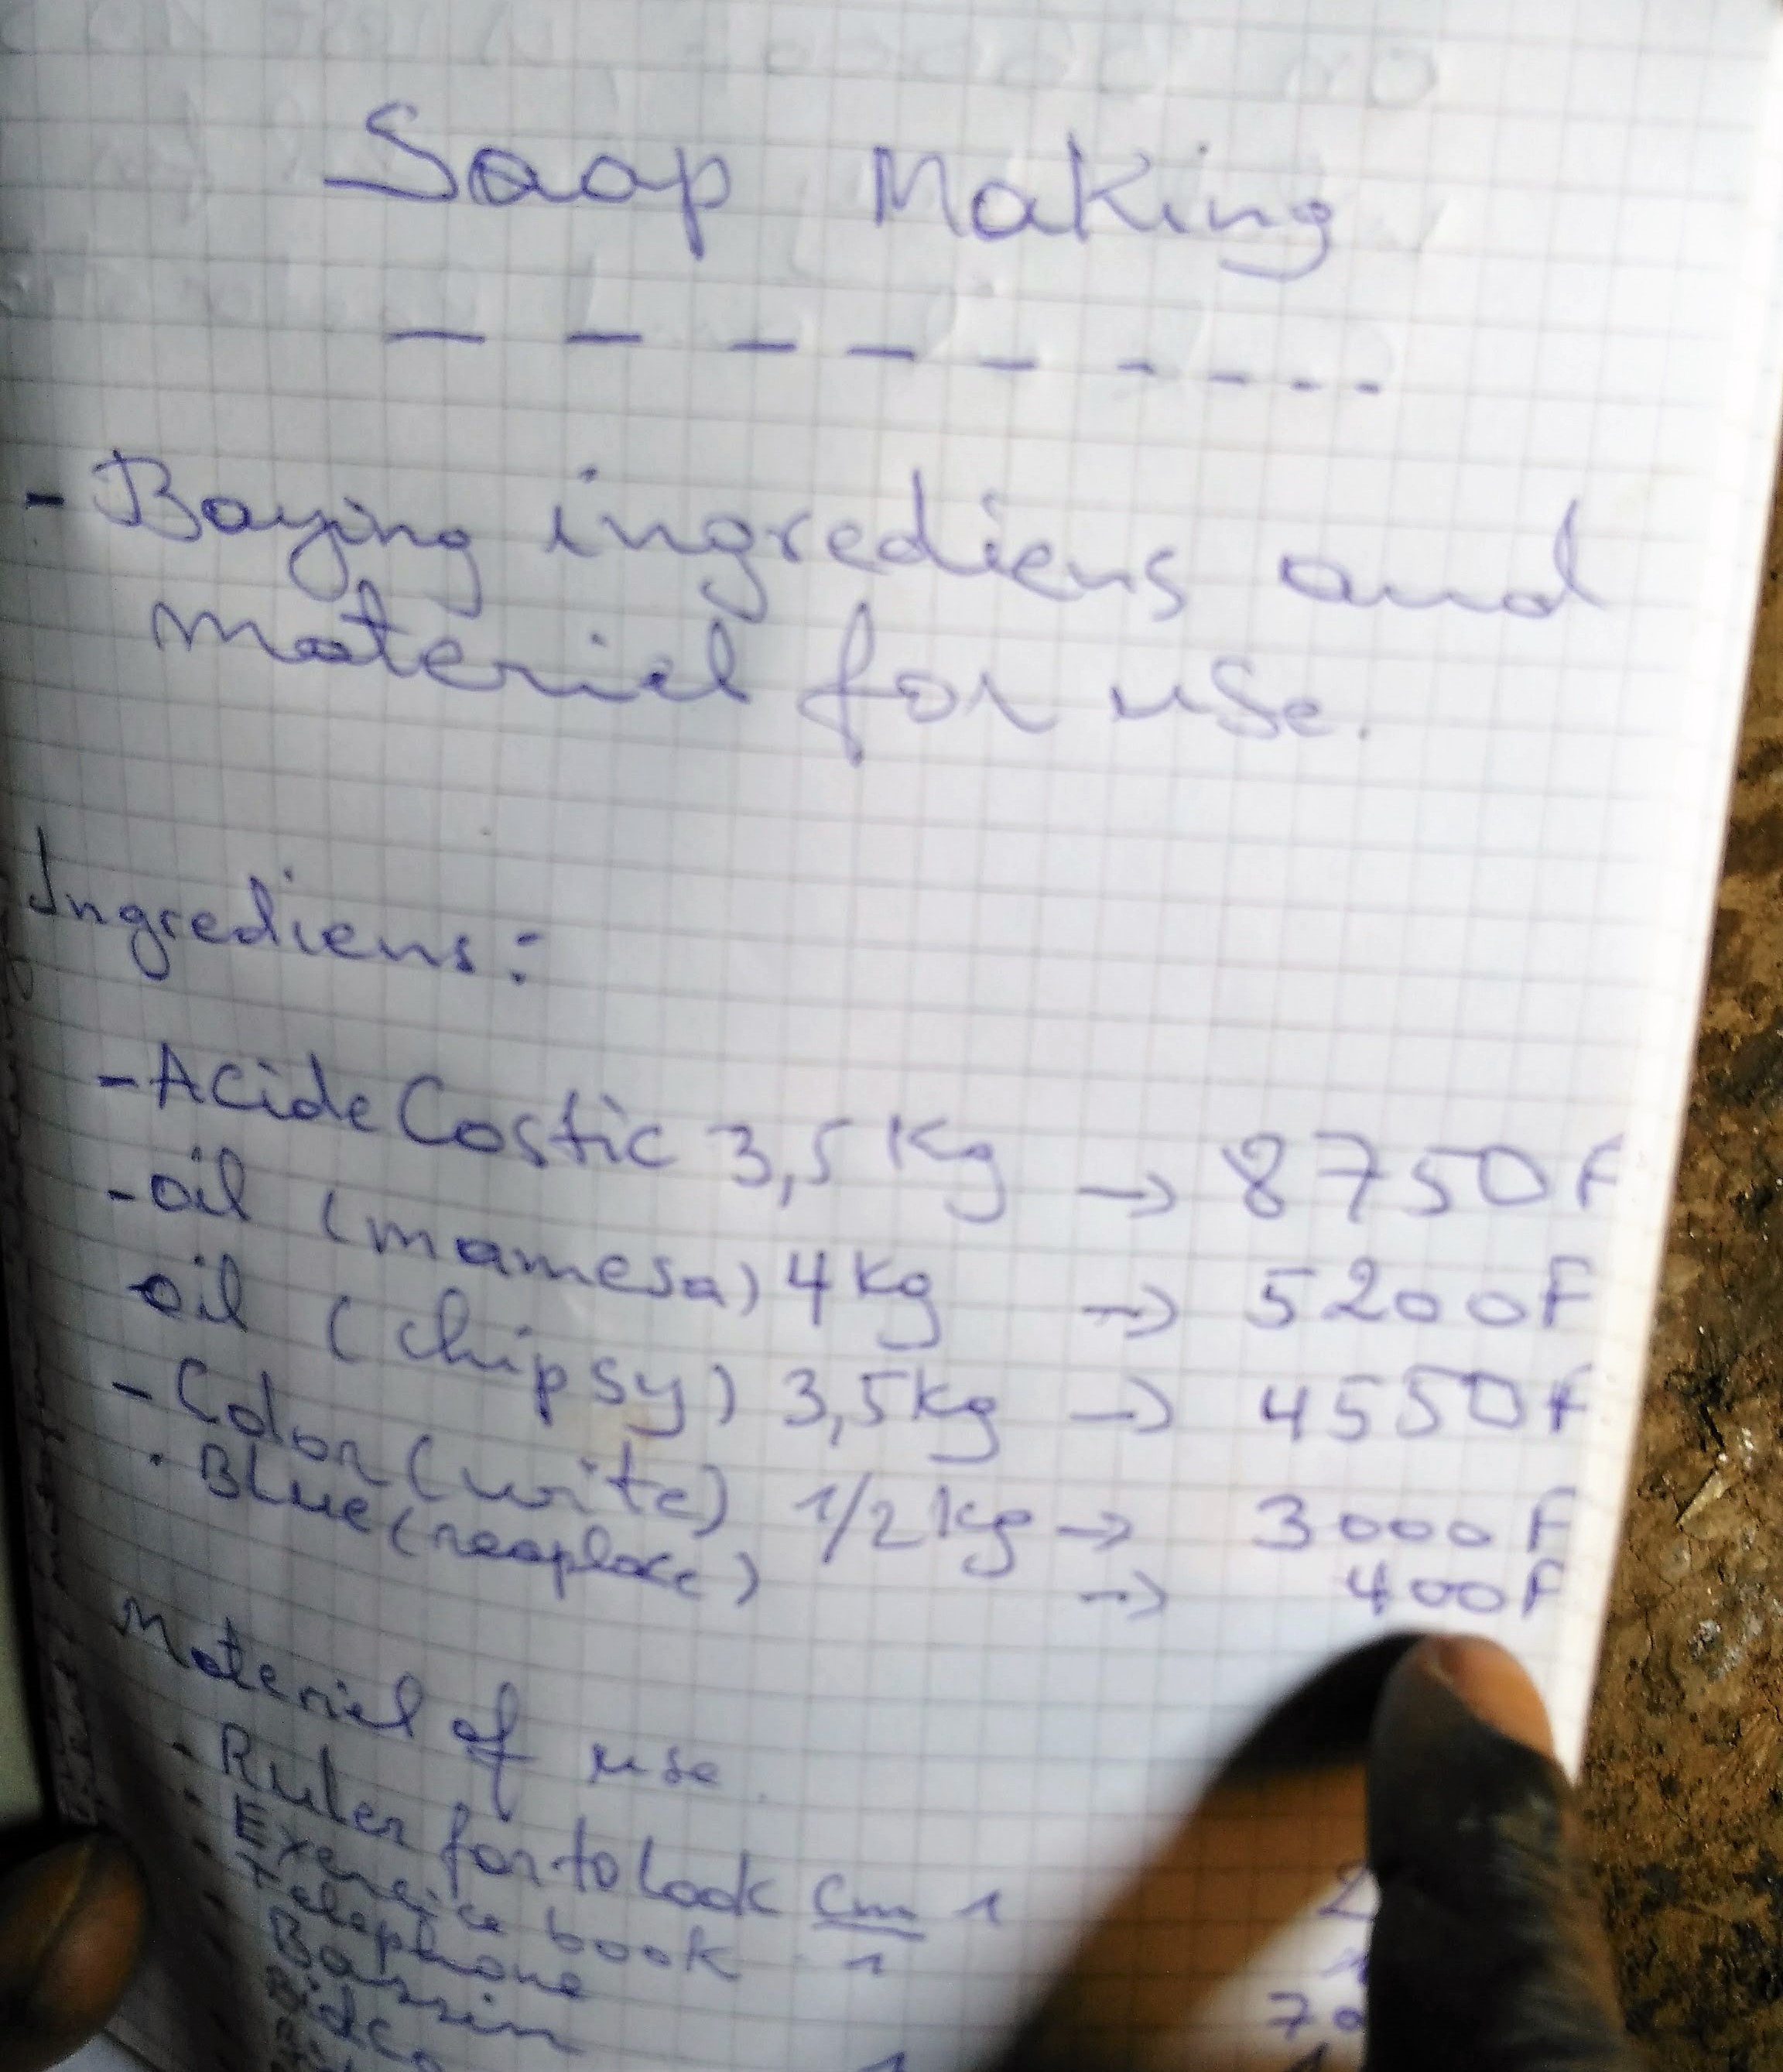 Soap Making
- Baying ingrediens and
materiel for use.
Ingrediens:
- Acide Costic 3,5 Kg → 8750 F
- oil (mamesa) 4 Kg → 5200 F
oil (chipsy) 3,5 kg → 4550 F
- Color (write) 1/2 kg → 3000 F
. Blue → 400 F
Materiel of use
- Ruler for to look cm 1
- Exercice book 1
- Telephone
- Bassin